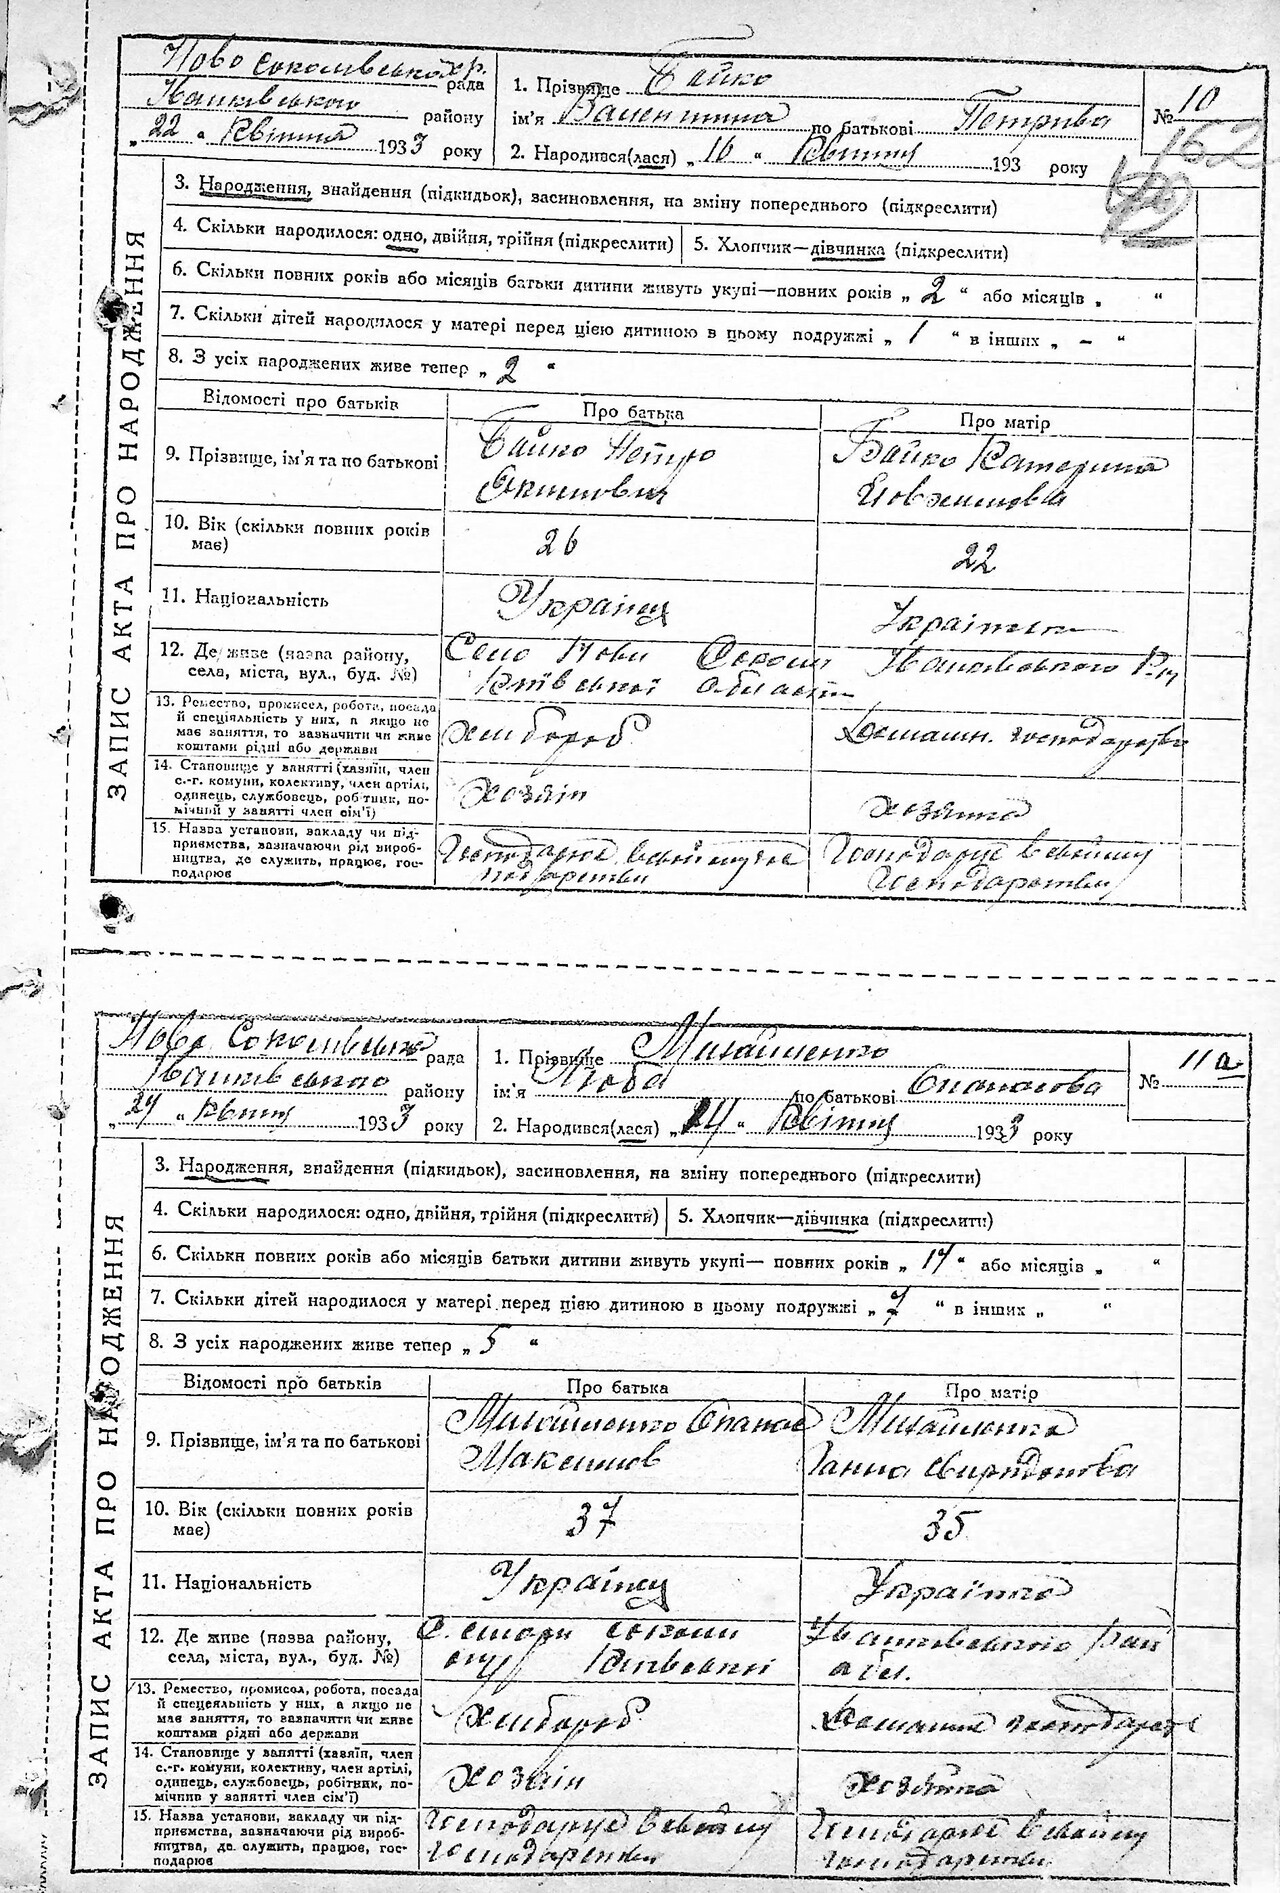 Ново Соколівська р. рада
Іванківського району
„22" Квітня 1933 року
1. Прізвище Байко
ім'я Валентина по батькові Петрівна
2. Народився(лася) „16" Квітня 193 року
№ 10
162
3. Народження, знайдення (підкидьок), засиновлення, на зміну попереднього (підкреслити)
4. Скільки народилося: одно, двійня, трійня (підкреслити)
5. Хлопчик—дівчинка (підкреслити)
6. Скільки повних років або місяців батьки дитини живуть укупі—повних років „2" або місяців „ "
7. Скільки дітей народилося у матері перед цією дитиною в цьому подружжі „1" в інших „-"
8. З усіх народжених живе тепер „2"
ЗАПИС АКТА ПРО НАРОДЖЕННЯ
Відомості про батьків
Про батька
Про матір
9. Прізвище, ім'я та по батькові
Байко Петро
Байко Катерина
10. Вік (скільки повних років
має)
26
22
11. Національність
Українец
Українка
12. Де живе (назва району,
села, міста, вул., буд. №)
Село Нови Соколи Іванківського Р-ну
Київської области
13. Ремество, промисел, робота, посада
й спеціяльність у них, а якщо не
має заняття, то зазначити чи живе
коштами рідні або держави
хлибороб
Домашн. господарство
14. Становище у занятті (хазяїн, член
с.-г. комуни, колективу, член артілі,
одинець, службовець, робітник, по-
мічний у занятті член сім'ї)
хозяін
хозяйка
15. Назва установи, закладу чи під-
приємства, зазначаючи рід вироб-
ництва, де служить, працює, гос-
подарює
Господарює в свойому гос
подарстви
Господарує в свойму
Господарстви
Ново Соколівська рада
Іванківського району
„24" Квітня 1933 року
1. Прізвище Михайленко
ім'я Люба по батькові Опанасова
2. Народився(лася) „14" Квітня 1933 року
№ 11а
3. Народження, знайдення (підкидьок), засиновлення, на зміну попереднього (підкреслити)
4. Скільки народилося: одно, двійня, трійня (підкреслити)
5. Хлопчик—дівчинка (підкреслити)
6. Скільки повних років або місяців батьки дитини живуть укупі— повних років „17" або місяців „ "
7. Скільки дітей народилося у матері перед цією дитиною в цьому подружжі „7" в інших „ "
8. З усіх народжених живе тепер „5"
ЗАПИС АКТА ПРО НАРОДЖЕННЯ
Відомості про батьків
Про батька
Про матір
9. Прізвище, ім'я та по батькові
Михайленко Опанас
Максимов
Михайленко
Ганна Свиридонова
10. Вік (скільки повних років
має)
37
35
11. Національність
Українец
Українка
12. Де живе (назва району,
села, міста, вул., буд. №)
С. Стари Соколи Іванковського рай
Київської обл.
13. Ремество, промисол, робота, посада
й спецеяльність у них, а якщо не
має заняття, то зазначити чи живе
коштами рідні або держави
Хлибороб
Домашне господарст
14. Становище у занятті (хазяїн, член
с.-г. комуни, колективу, член артілі,
одинець, службовець, робітник, по-
мічнив у занятті член сім'ї)
хозяін
хозяйка
15. Назва установи, закладу чи під-
приємства, зазначаючи рід вироб-
ництва, де служить, працює, гос-
подарює
Господарує в свойму
Господарстви
Господарює в свойму
господарстви